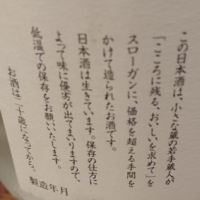 この日本酒は、小さな蔵の若手蔵人が
「こころに残る、おいしいを求めて」を
スローガンに、価格を超える手間を
かけて造られたお酒です。
日本酒は生きています。保存の仕方に
よって味に優劣が出てまいりますので、
低温での保存をお願いいたします。
お酒は二十歳になってから。
製造年月